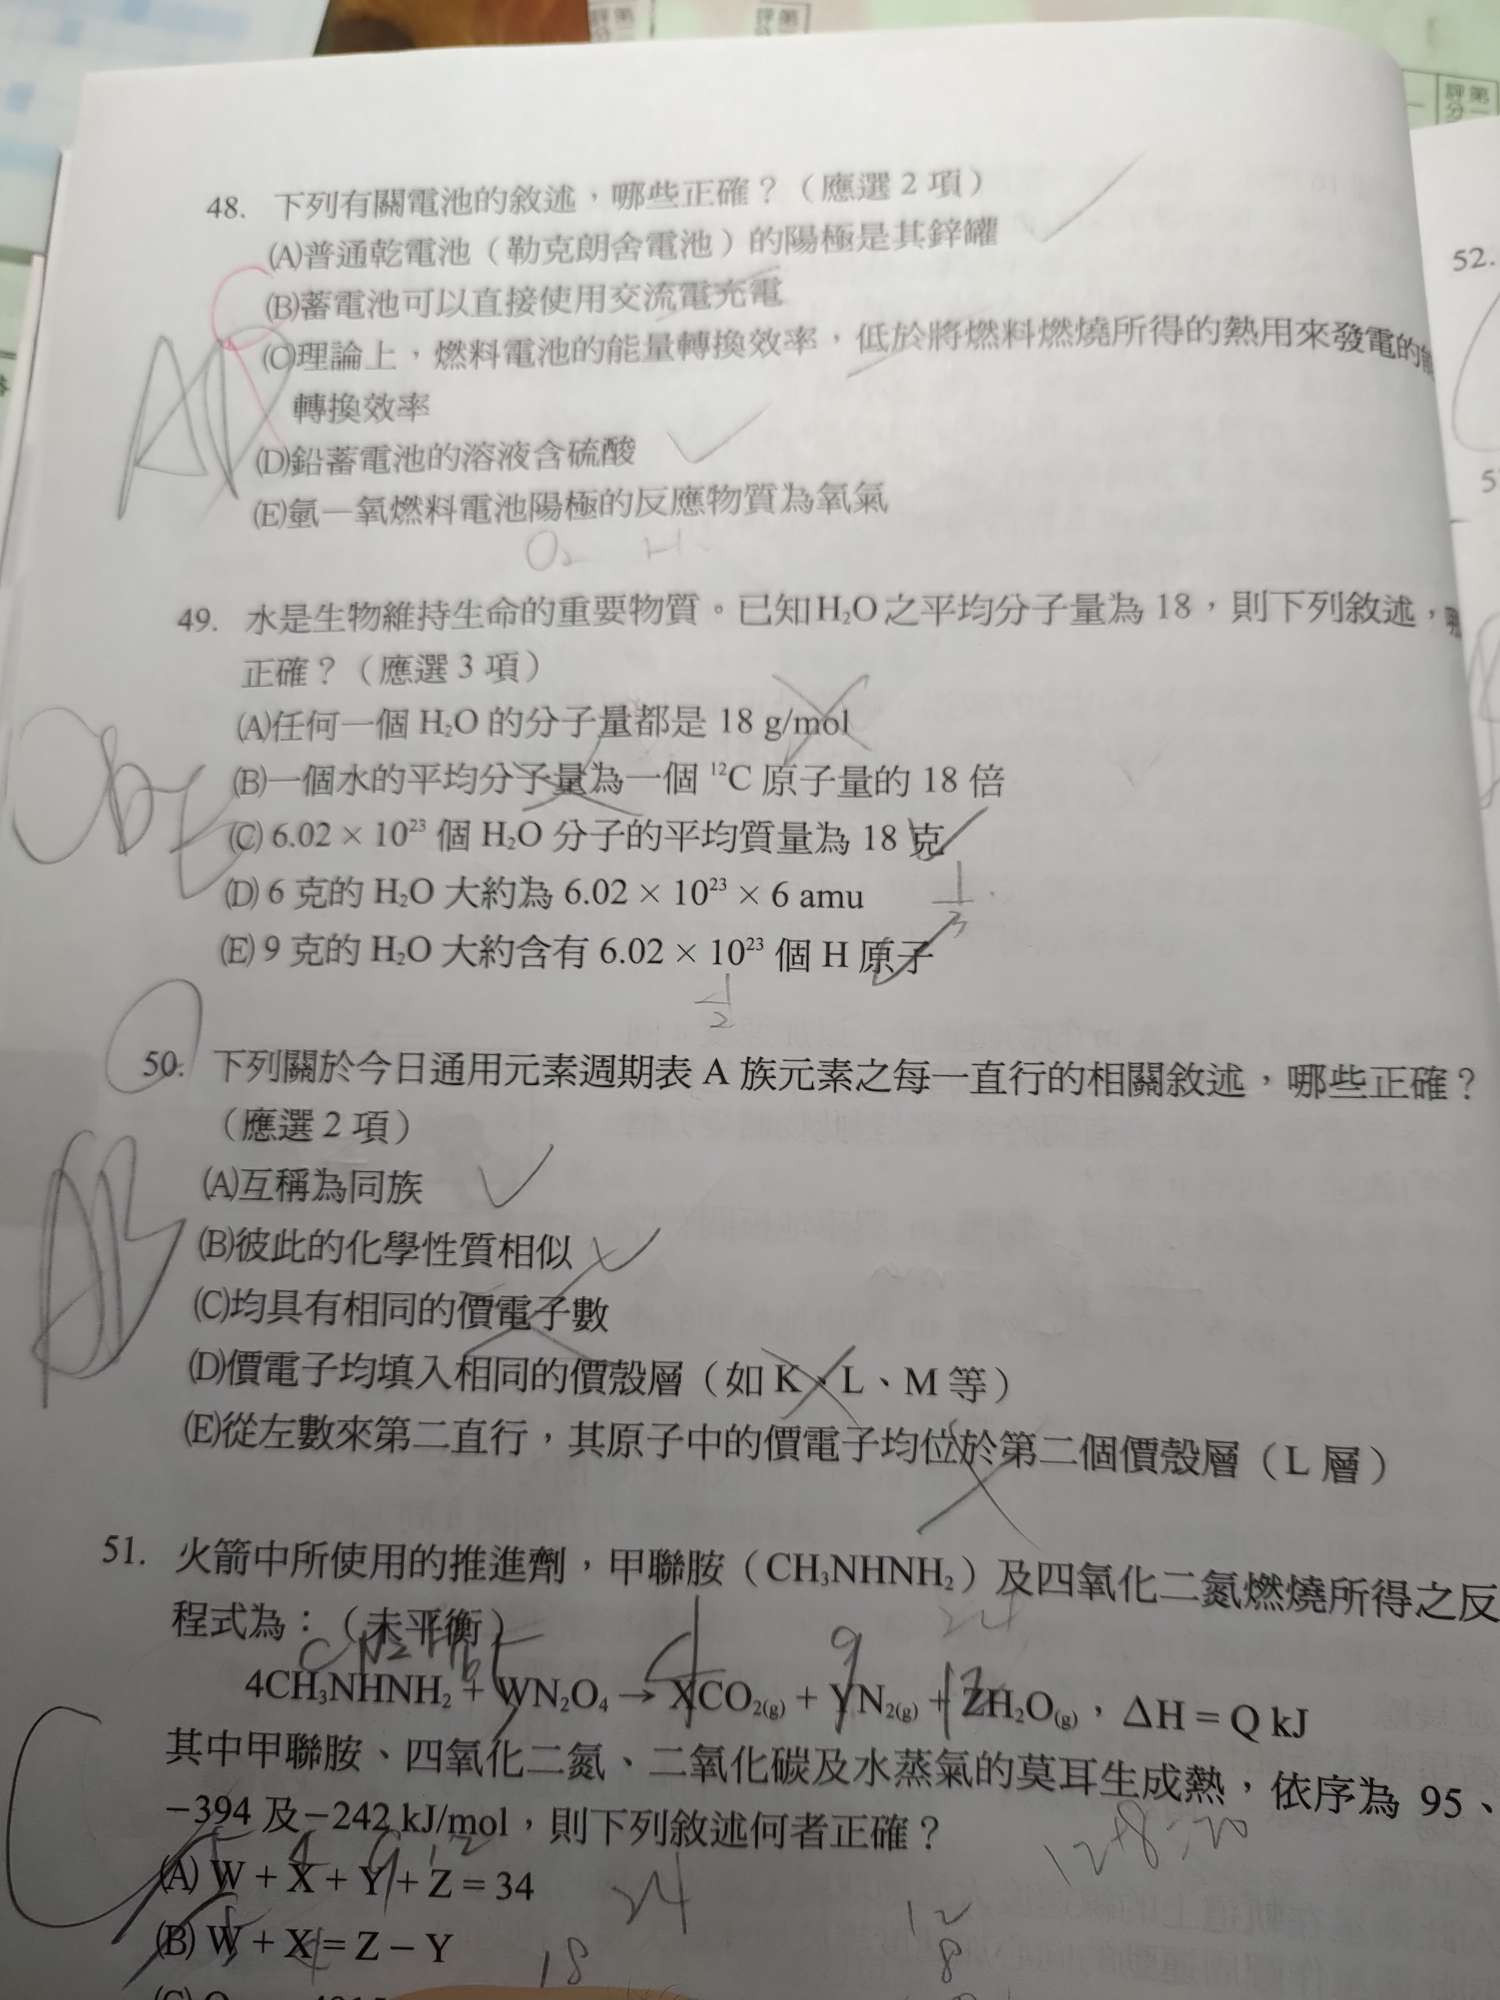 48. 下列有關電池的敘述，哪些正確？（應選 2 項）
(A)普通乾電池（勒克朗舍電池）的陽極是其鋅罐
(B)蓄電池可以直接使用交流電充電
(C)理論上，燃料電池的能量轉換效率，低於將燃料燃燒所得的熱用來發電的
轉換效率
(D)鉛蓄電池的溶液含硫酸
(E)氫－氧燃料電池陽極的反應物質為氧氣
O₂ H
49. 水是生物維持生命的重要物質。已知H₂O之平均分子量為 18，則下列敘述，
正確？（應選 3 項）
(A)任何一個 H₂O 的分子量都是 18 g/mol
(B)一個水的平均分子量為一個 ¹²C 原子量的 18 倍
(C) 6.02 × 10²³ 個 H₂O 分子的平均質量為 18 克
(D) 6 克的 H₂O 大約為 6.02 × 10²³ × 6 amu
1/3
(E) 9 克的 H₂O 大約含有 6.02 × 10²³ 個 H 原子
1/2
50. 下列關於今日通用元素週期表 A 族元素之每一直行的相關敘述，哪些正確？
（應選 2 項）
AB
(A)互稱為同族
(B)彼此的化學性質相似
(C)均具有相同的價電子數
(D)價電子均填入相同的價殼層（如 K、L、M 等）
(E)從左數來第二直行，其原子中的價電子均位於第二個價殼層（L 層）
51. 火箭中所使用的推進劑，甲聯胺（CH₃NHNH₂）及四氧化二氮燃燒所得之反
24
程式為：（未平衡）
4 9 12
4CH₃NHNH₂ + WN₂O₄ → XCO₂(g) + YN₂(g) + ZH₂O(g)，ΔH = Q kJ
其中甲聯胺、四氧化二氮、二氧化碳及水蒸氣的莫耳生成熱，依序為 95、
−394 及−242 kJ/mol，則下列敘述何者正確？
12+8=20
4 9 12
(A) W + X + Y + Z = 34
24
(B) W + X = Z − Y
18
12
8